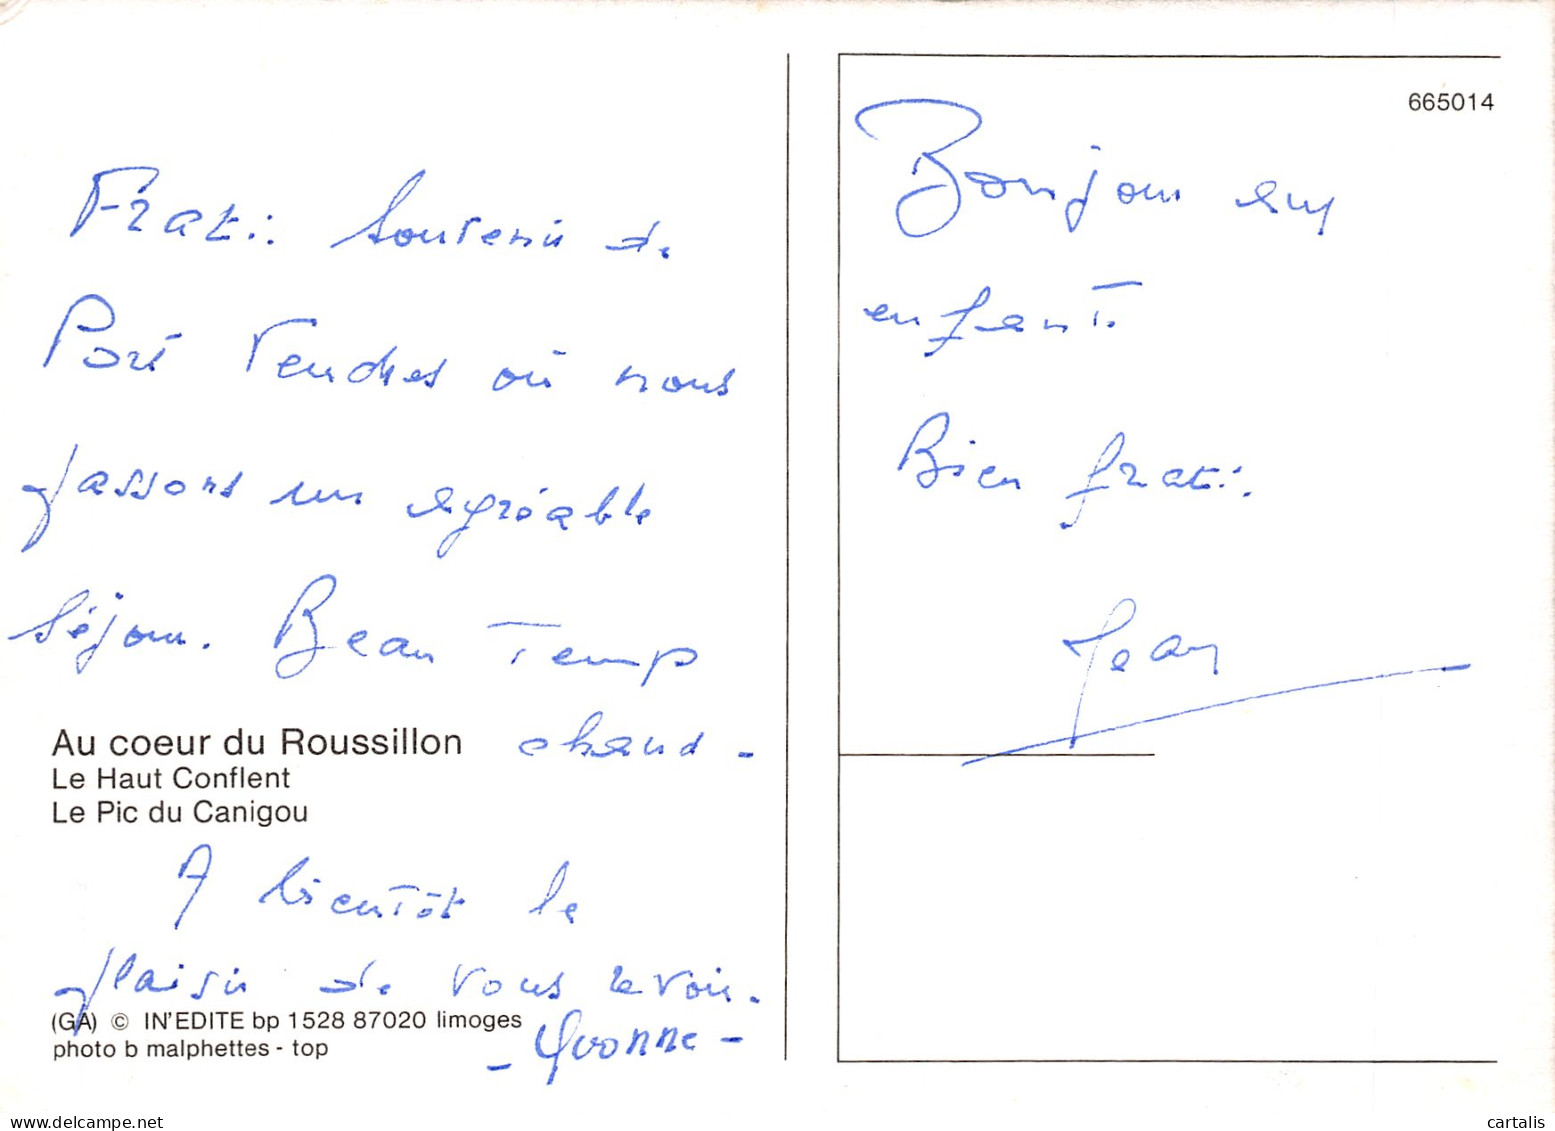 Frat∴ Souvenir de
Port Vendres où nous
passons un agréable
séjour. Beau Temp
chaud -
Au coeur du Roussillon
Le Haut Conflent
Le Pic du Canigou
A bientôt le
plaisir de vous revoir.
- Yvonne -
(GA) © IN'EDITE bp 1528 87020 limoges
photo b malphettes - top
665014
Bonjour aux
enfants
Bien frat∴
Jean
cartalis